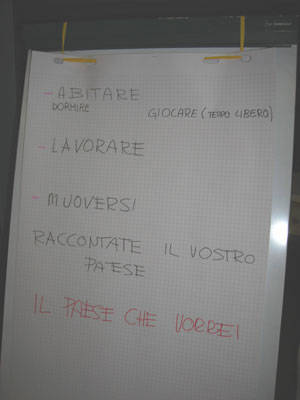 - ABITARE
DORMIRE
GIOCARE (TEMPO LIBERO)
- LAVORARE
- MUOVERSI
RACCONTATE IL VOSTRO
PAESE
IL PAESE CHE VORREI